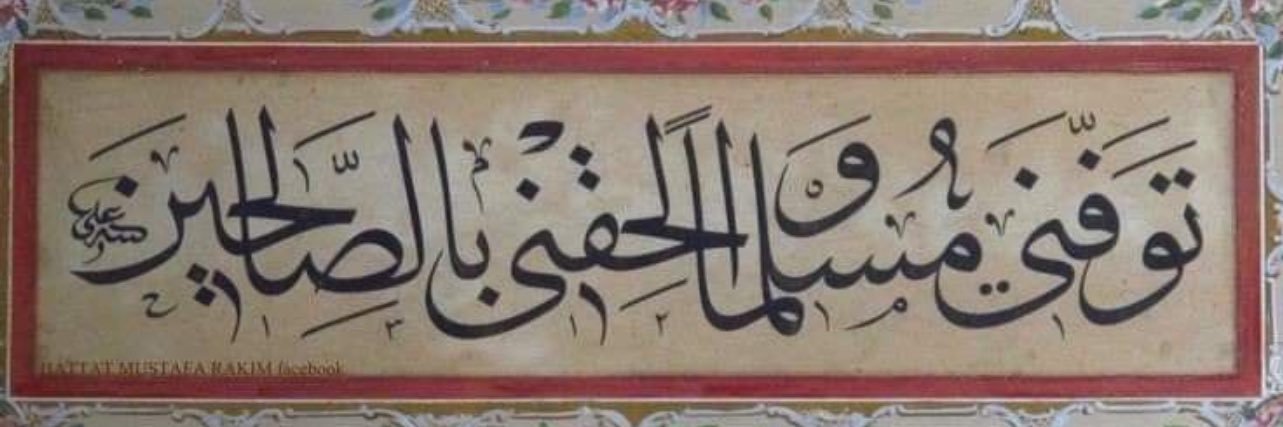 تَوَفَّنِي مُسْلِمًا وَأَلْحِقْنِي بِالصَّالِحِينَ
سنه علي ١٢١٣
HATTAT MUSTAFA RAKIM facebook